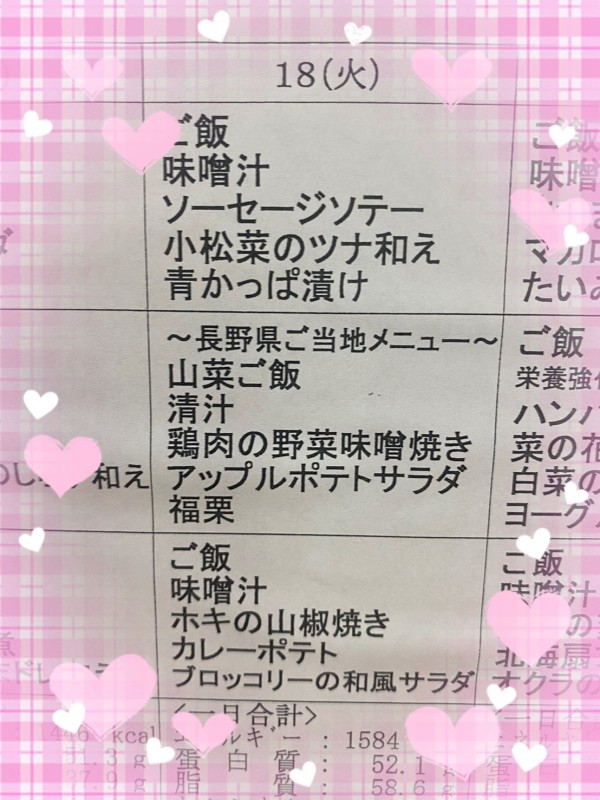 18(火)
ご飯
味噌汁
ソーセージソテー
小松菜のツナ和え
青かっぱ漬け
～長野県ご当地メニュー～
山菜ご飯
清汁
鶏肉の野菜味噌焼き
アップルポテトサラダ
福栗
ご飯
味噌汁
ホキの山椒焼き
カレーポテト
ブロッコリーの和風サラダ
<一日合計>
エネルギー : 1584
蛋白質 : 52.1 g
脂質 : 58.6 g
和え
446 kcal
51.3 g
37.9 g
ご飯
味噌
たい
ご飯
栄養強化
ハンバ
菜の花
白菜の
ヨーグル
ご飯
味噌汁
の
北海扇
オクラの